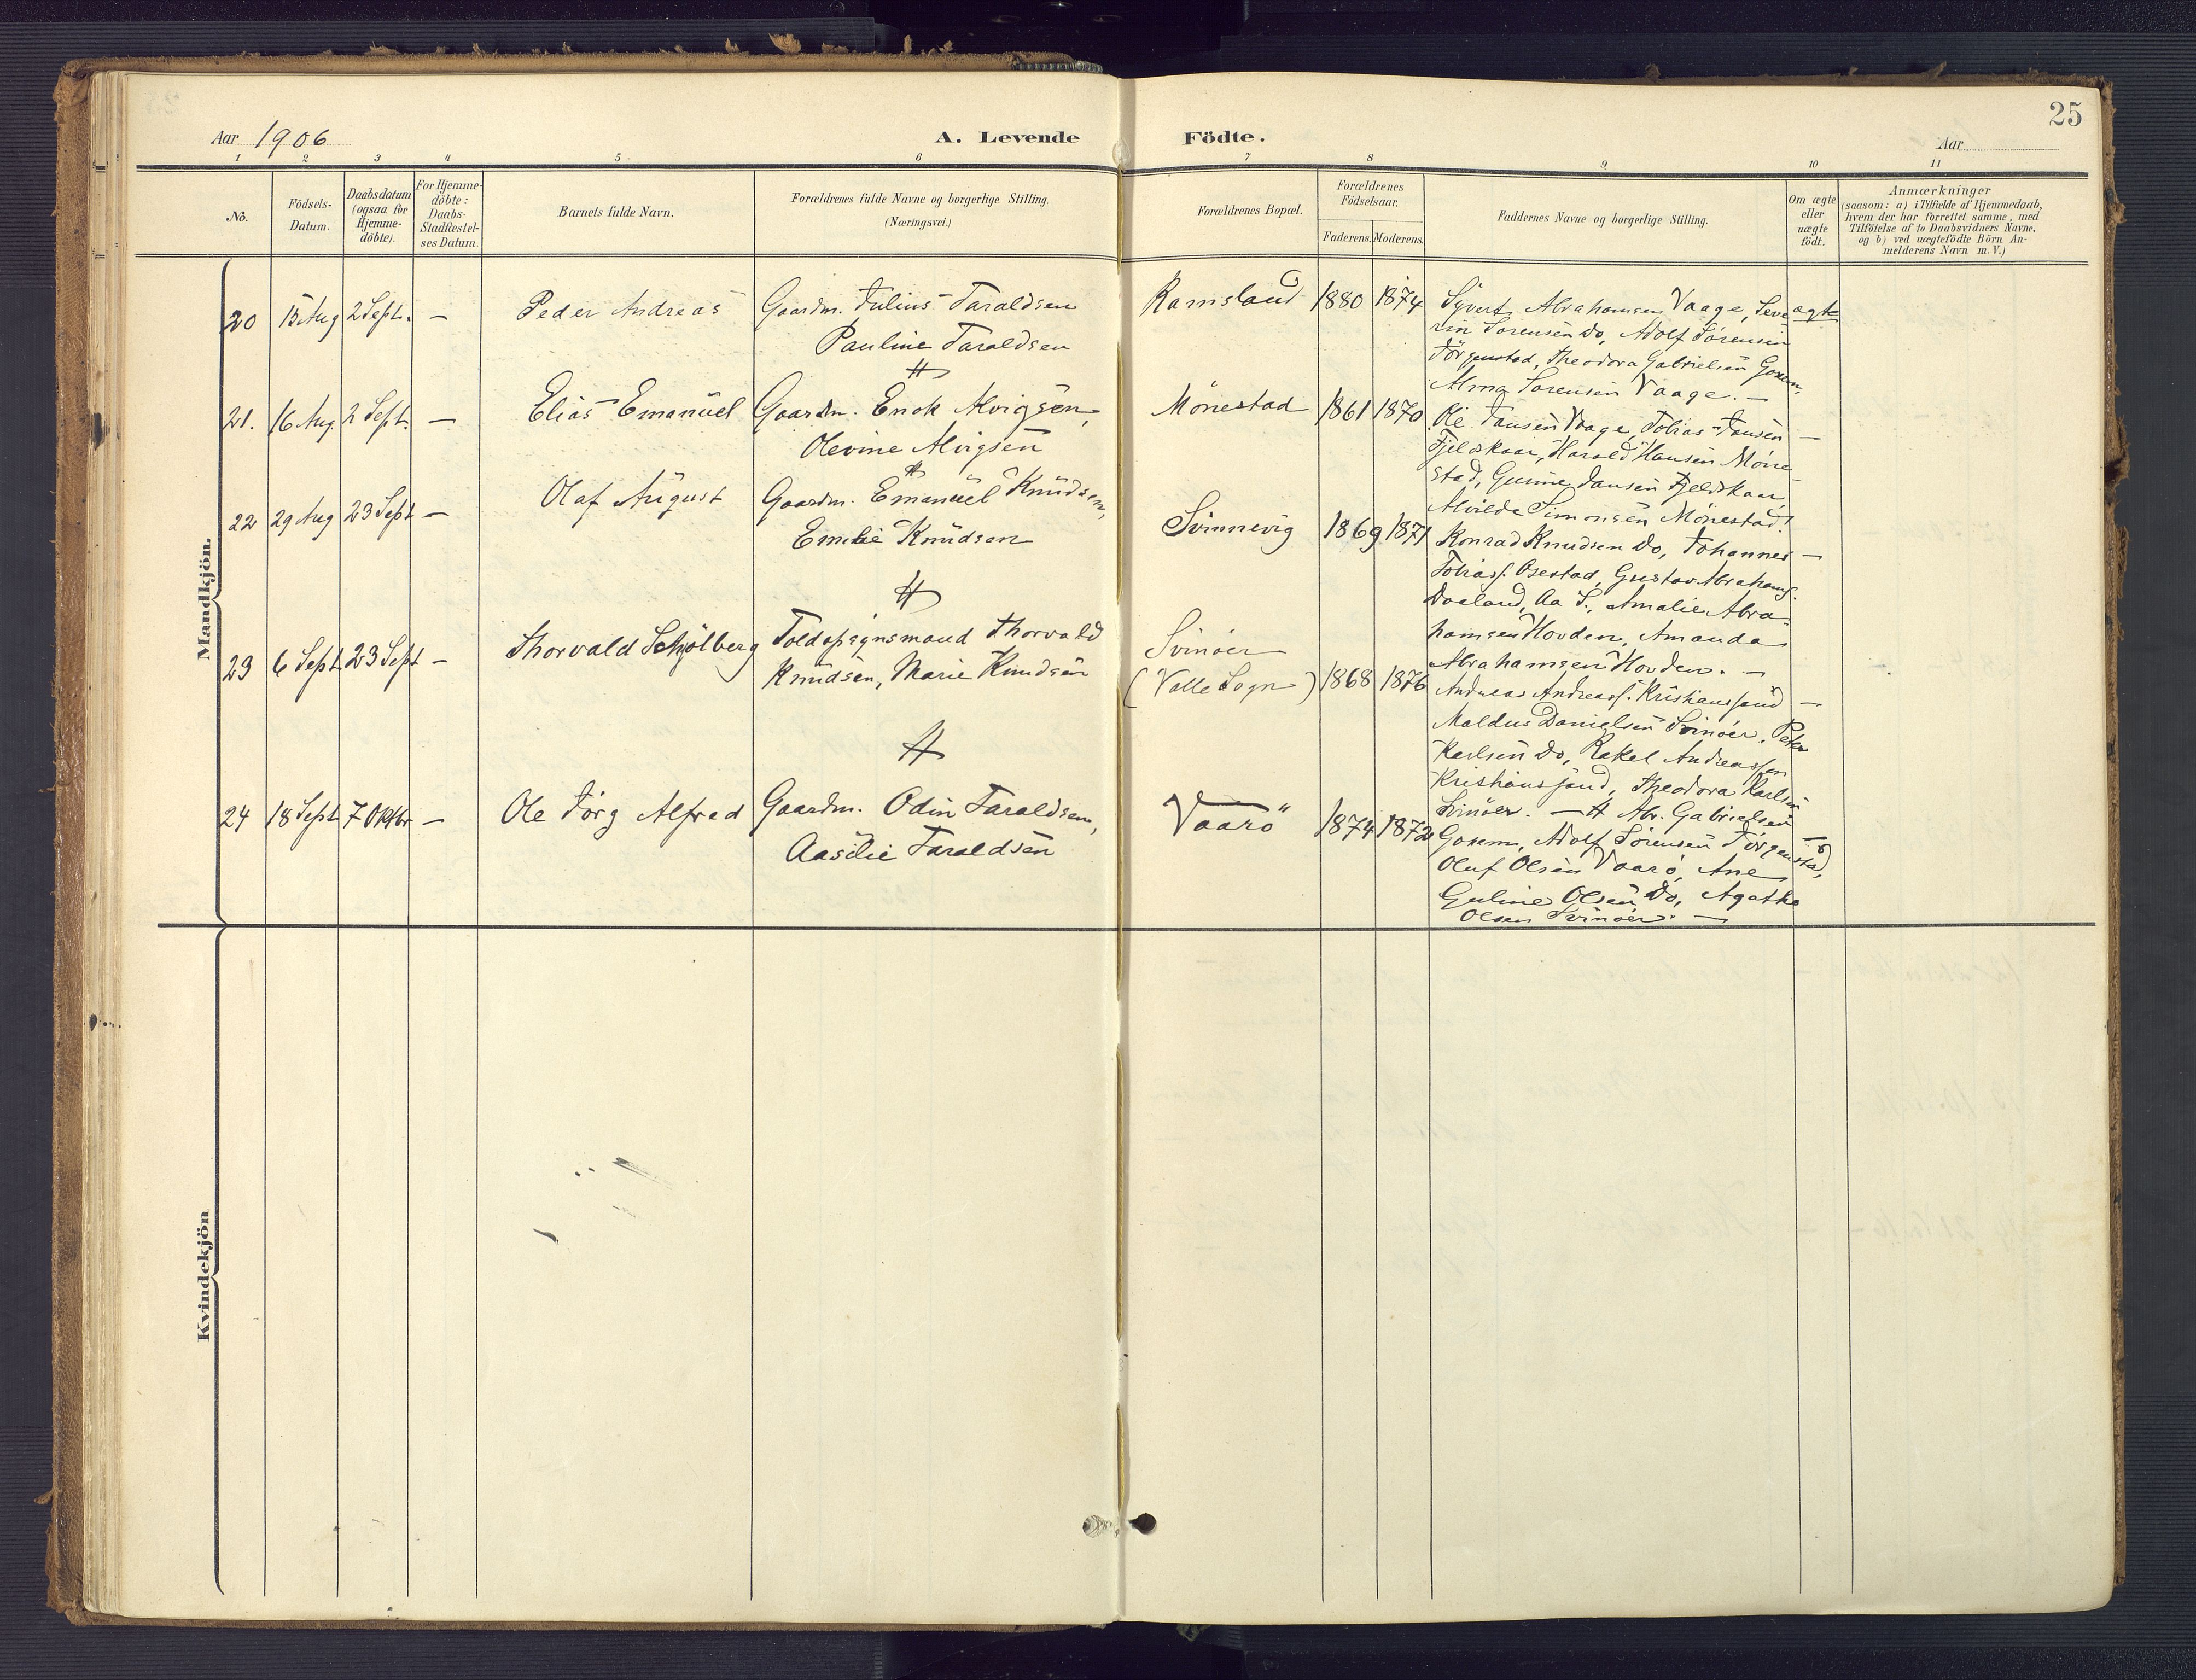 25
Aar 1906
A. Levende Födte.
Aar
1 2 3 4 5 6 7 8 9 10 11
No.
Födsels-Datum.
Daabsdatum (ogsaa for Hjemme-döbte).
For Hjemme-döbte: Daabs-Stadfæstel-ses Datum.
Barnets fulde Navn.
Forældrenes fulde Navne og borgerlige Stilling.
(Næringsvei.)
Forældrenes Bopæl.
Forældrenes Födselsaar.
Faderens. Moderens.
Faddernes Navne og borgerlige Stilling.
Om ægte eller uægte födt.
Anmærkninger
(saasom: a) i Tilfælde af Hjemmedaab,
hvem der har forrettet samme, med
Tilföielse af to Daabsvidners Navne,
og b) ved uægtefödte Börn An-
melderens Navn m. V.)
Mandkjön.
20 15 Aug 2 Sept. — Peder Andreas
Gaardm. Julius Taraldsen
Pauline Taraldsen
Ramsland 1880 1874
Syvert Abrahamsen Vaage, Seve
ægte
rin Sorensen Do, Adolf Sörensen
Jörgenstad, Theodora Gabrielsen Gosem,
Alma Sorensen Vaage. —
21. 16 Aug. 2 Sept. — Elias Emanuel
Gaardm. Enok Alvigsen,
Olevine Alvigsen
Mönestad 1861 1870
Ole Jansen Vaage, Tobias Jansen —
Fjeldskaar, Harald Hansen Möne
stad, Gurine Jansen Fjeldskaar
Alvilde Simonsen Mönestad.
22 29 Aug 23 Sept — Olaf August
Gaardm. Emanuel Knudsen,
Emelie Knudsen
Svinnevig 1869 1871
Konrad Knudsen Do, Johannes —
Tobiass. Osestad, Gustav Abrahams.
Daaland, Aa S., Amalie Abra
hamsen Hovden, Amanda
Abrahamsen Hovden. —
23 6 Sept 23 Sept — Thorvald Schjölberg
Toldopsynsmand Thorvald
Knudsen, Marie Knudsen
Svinöer
(Valle Sogn) 1868 1876
Andreas Andreass. Kristianssand —
Maldus Danielsen Svinöer, Peter
Karlsen Do, Rakel Andreassen
Kristianssand, Theodora Karlsen
Svinöer. —
24 18 Sept 7 Oktbr — Ole Jörg Alfred
Gaardm. Odin Taraldsen,
Aasilie Taraldsen
Vaarö 1874 1872
Abr. Gabrielsen
Gosem, Adolf Sörensen Jörgenstad,
Oluf Olsen Vaarö, Ane
Guline Olsen Do, Agathe
Olsen Svinöer. —
Kvindekjön